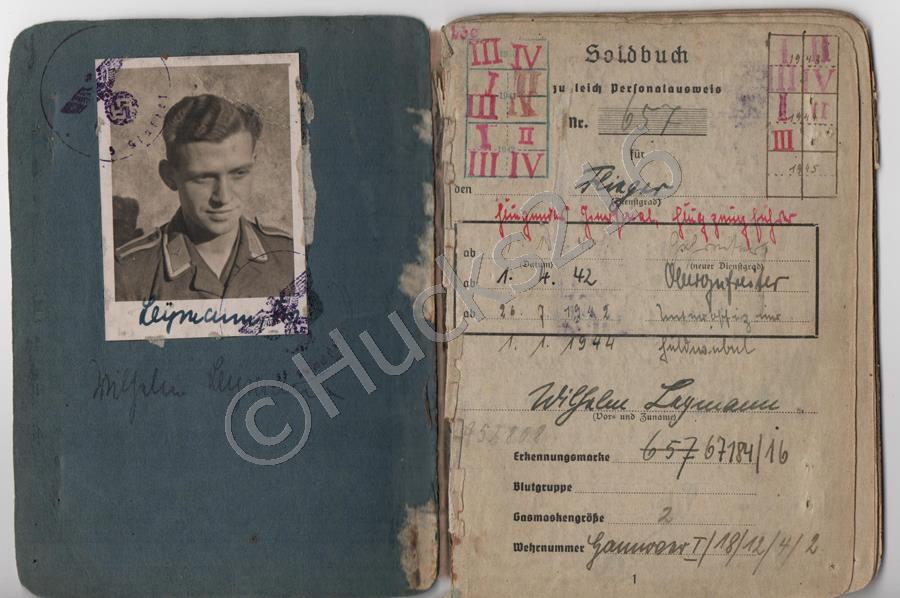 Leymann
Wilhelm
III IV
I
III
I II
III IV
Soldbuch
zugleich Personalausweis
Nr. 657
für
den Flieger
(Dienstgrad)
I II
1943
III IV
I II
III
1945
ab
(Datum) (neuer Dienstgrad)
ab 1. 4. 42 Obergefreiter
ab 26. 7 1942 Unteroffizier
1. 1. 1944 Feldwebel
Wilhelm Leymann
(Vor- und Zuname)
Erkennungsmarke 657 67184/16
Blutgruppe
Gasmaskengröße 2
Wehrnummer Hannover I/18/12/4/2
1
©Hucks216